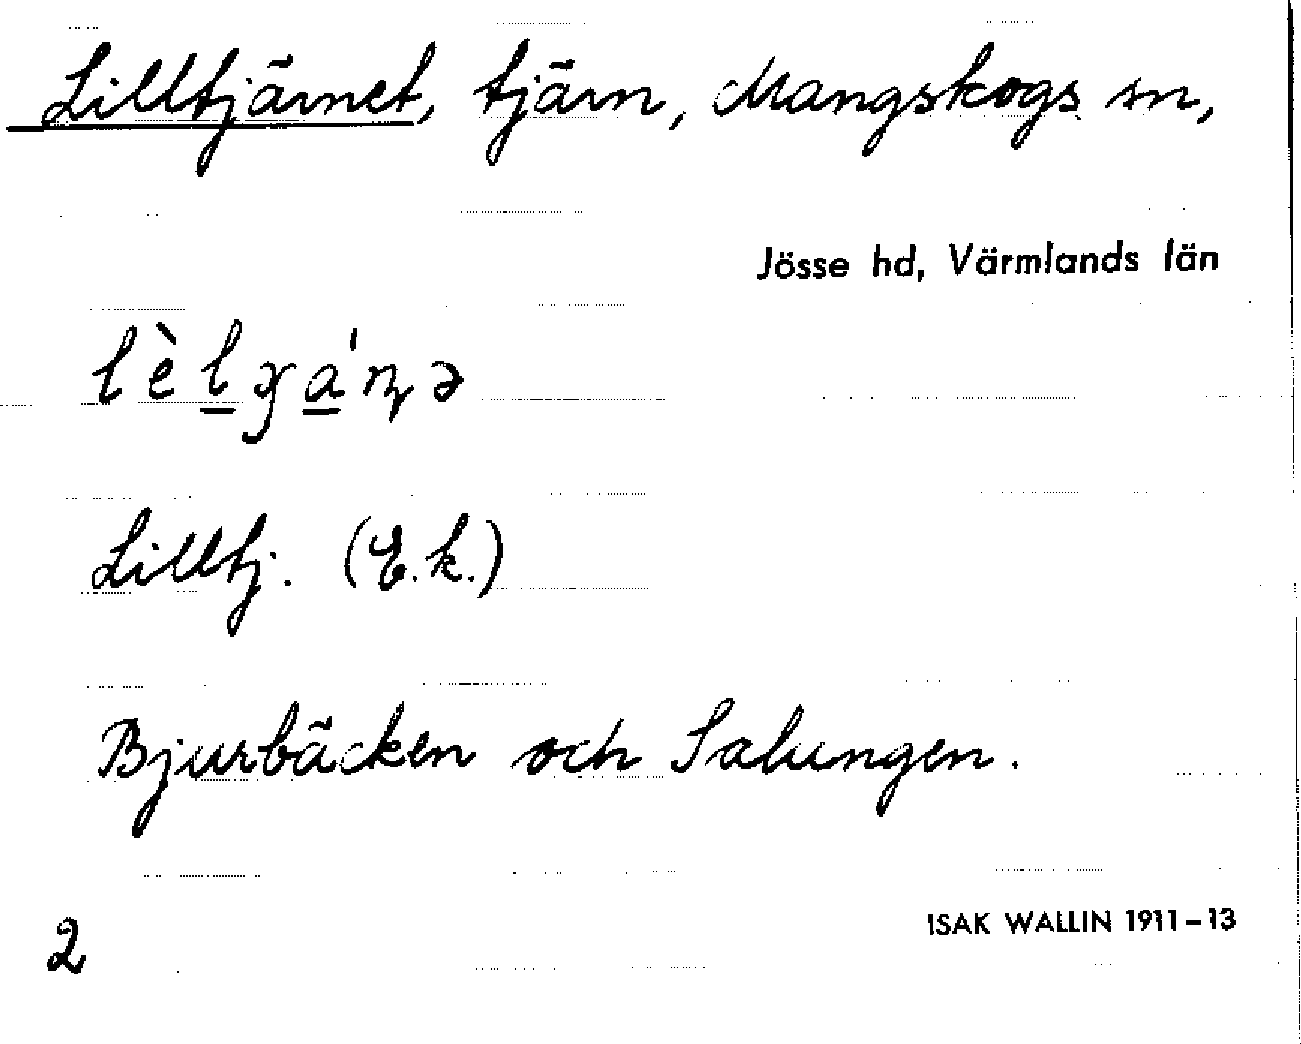 Lilltjärnet, tjärn, Mangskogs sn,
Jösse hd, Värmlands län
Lilltj. (E.k.)
Bjurbäcken och Salungen.
2
ISAK WALLIN 1911–13